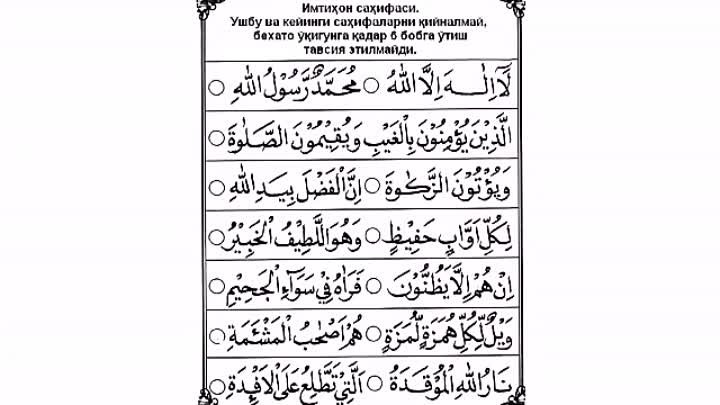 Имтиҳон саҳифаси.
Ушбу ва кейинги саҳифаларни қийналмай,
бехато ўқигунга қадар 6 бобга ўтиш
тавсия этилмайди.
لَآ اِلٰهَ اِلَّا اللهُ ○ مُحَمَّدٌ رَّسُوْلُ اللهِ ○
اَلَّذِيْنَ يُؤْمِنُوْنَ بِالْغَيْبِ وَيُقِيْمُوْنَ الصَّلٰوةَ ○
وَيُؤْتُوْنَ الزَّكٰوةَ ○ اِنَّ الْفَضْلَ بِيَدِ اللهِ ○
لِكُلِّ اَوَّابٍ حَفِيْظٍ ○ وَهُوَ اللَّطِيْفُ الْخَبِيْرُ ○
اِنْ هُمْ اِلَّا يَظُنُّوْنَ ○ فَرَاٰهُ فِيْ سَوَآءِ الْجَحِيْمِ ○
وَيْلٌ لِّكُلِّ هُمَزَةٍ لُّمَزَةٍ ○ هُمْ اَصْحٰبُ الْمَشْئَمَةِ ○
نَارُ اللهِ الْمُوْقَدَةُ ○ اَلَّتِيْ تَطَّلِعُ عَلَى الْاَفْئِدَةِ ○